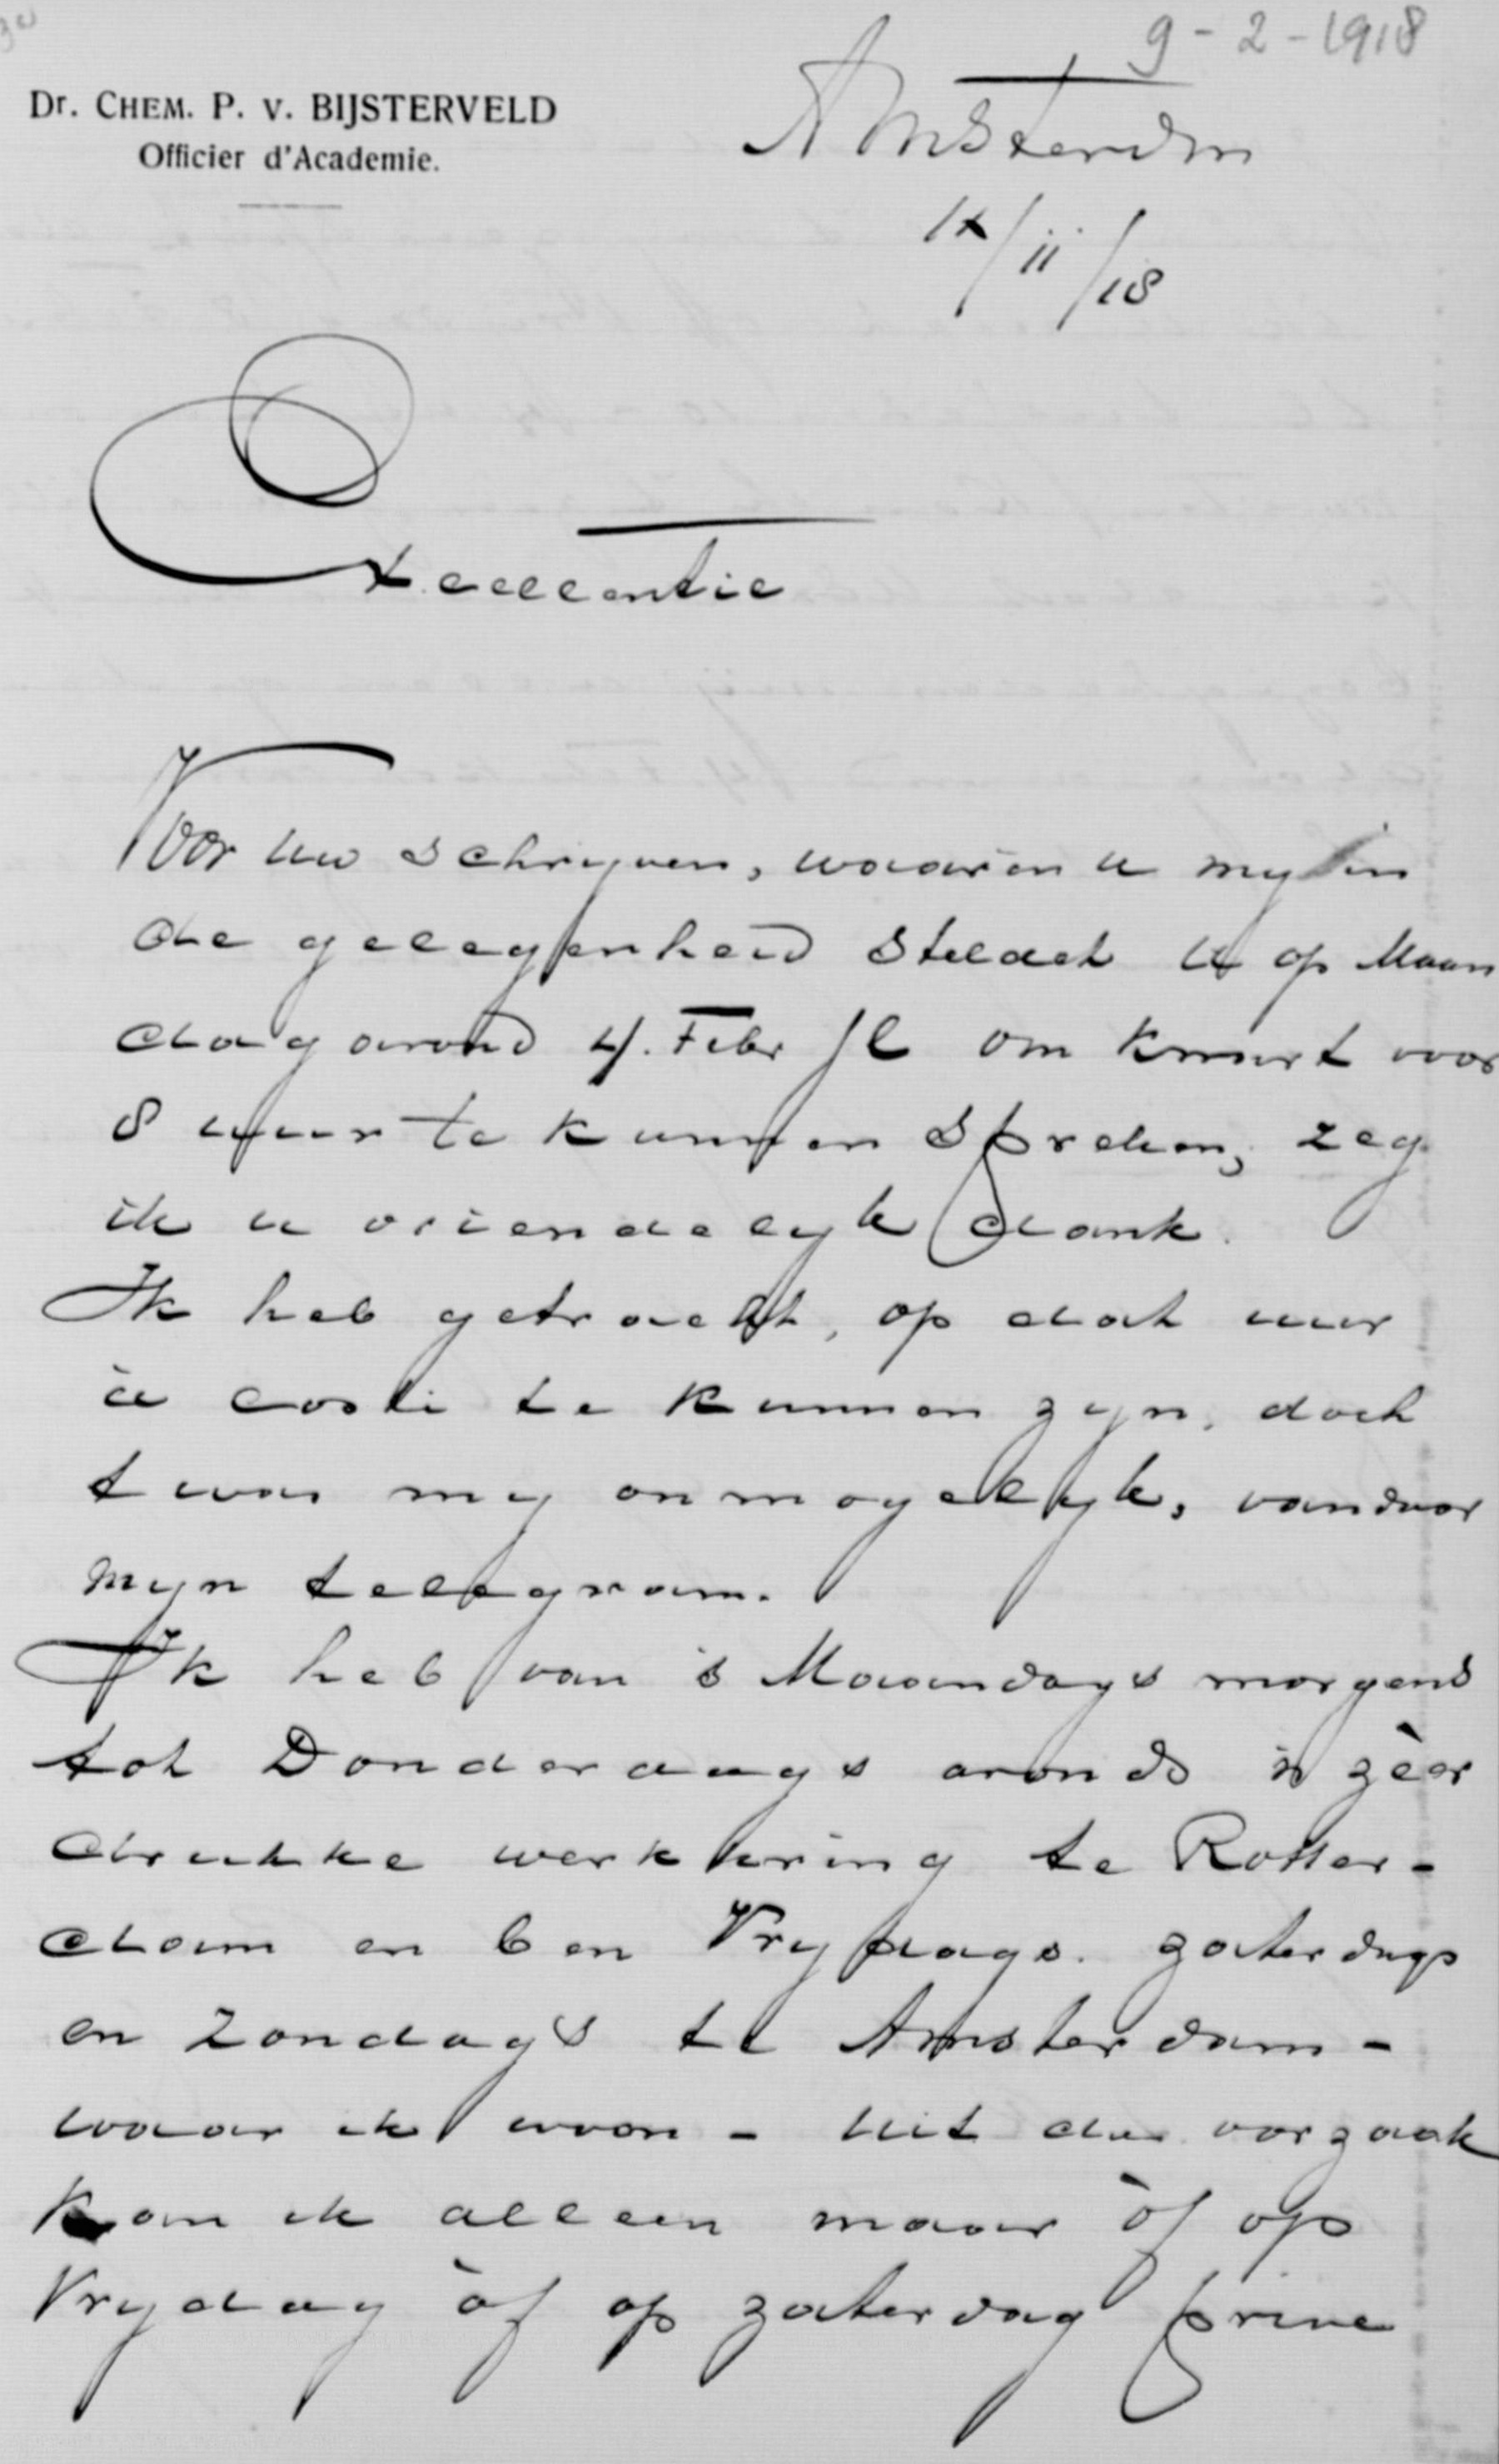 9-2-1918
Dr. CHEM. P. v. BIJSTERVELD
Officier d'Academie.
Amsterdm
IX/ii/18
Excellentie
Voor uw schryven, waarin u my in
de gelegenheid steldet U op Maan
dagavond 4. Febr jl om kwart voor
8 uur te kunnen spreken, zeg
ik u vriendelyk dank.
Ik heb getracht, op dat uur
à costi te kunnen zyn, doch
t was my onmogelyk, vandaar
myn telegram.
Ik heb van 's Maandags morgens
tot Donderdags avonds 'n zèer
drukke werkkring te Rotter-
dam en ben Vrydags. zaterdags
en Zondags te Amsterdam -
waar ik woon - uit die oorzaak
kan ik alleen maar òf op
Vrydag òf op zaterdag